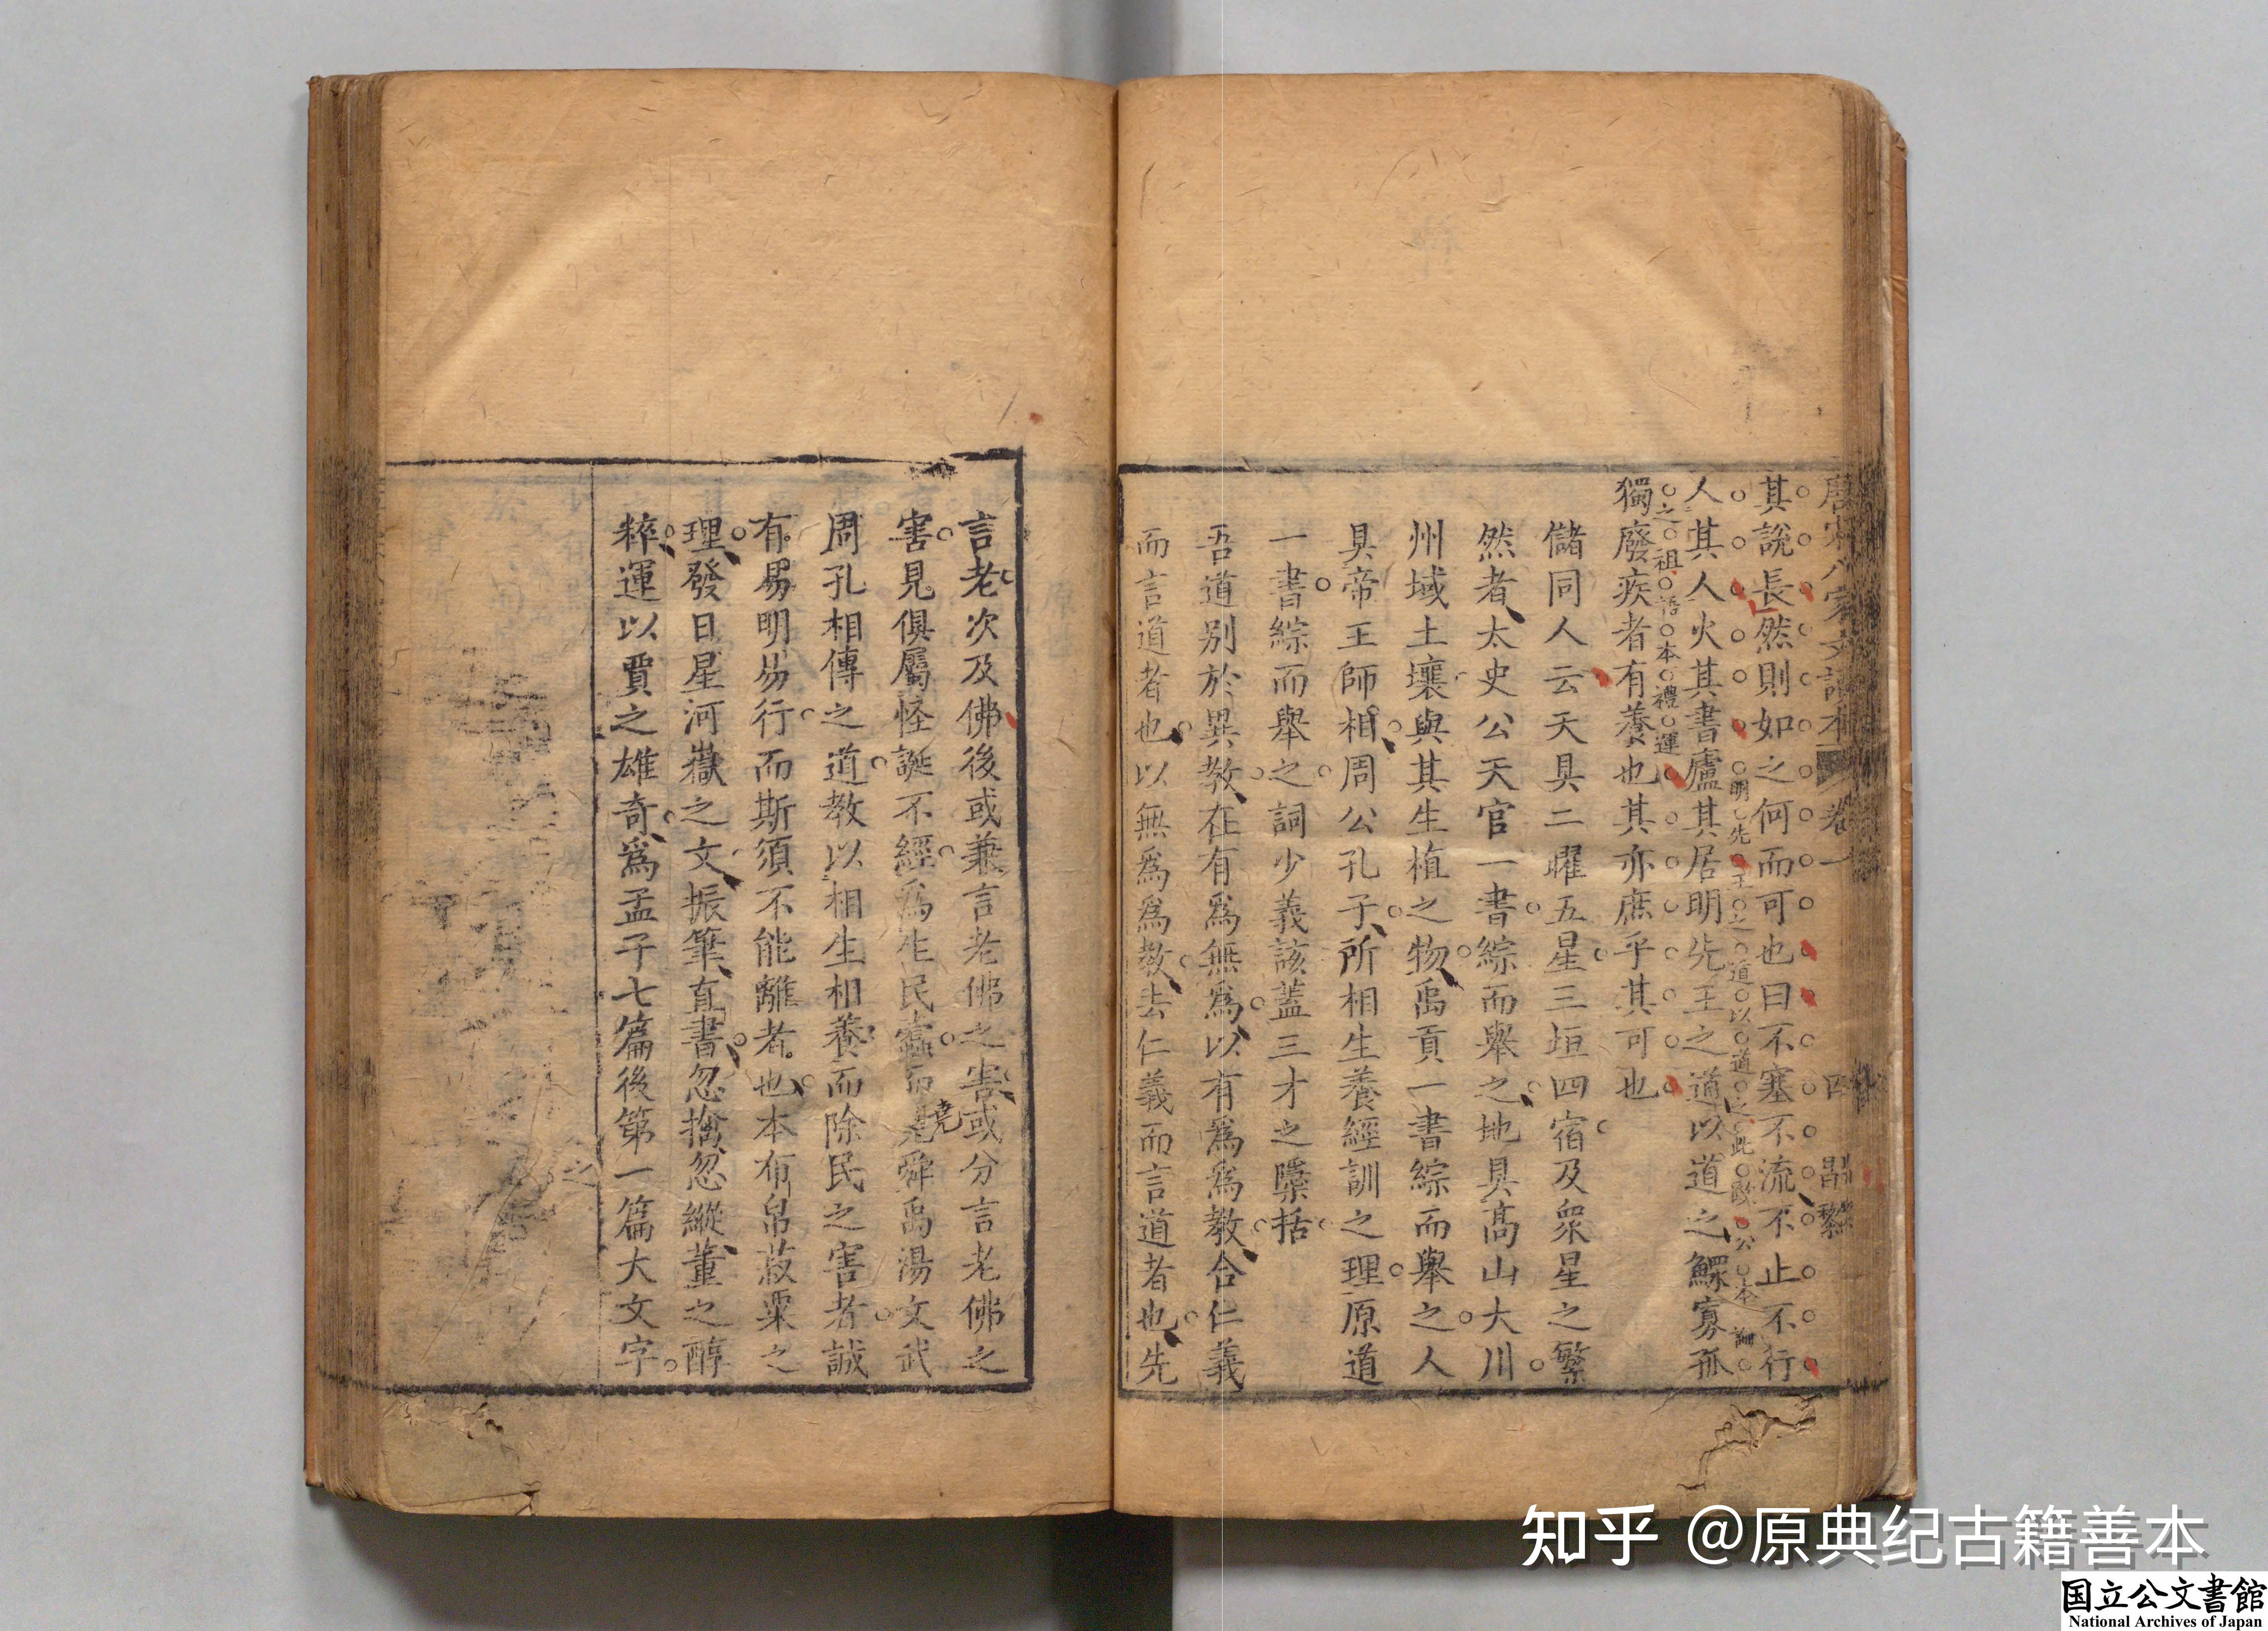 唐宋八家文讀本 卷一 四 昌黎
其說長然則如之何而可也曰不塞不流不止不行
人其人火其書廬其居明先王之道以道之鰥寡孤
明先王之道以道之此段公本論
獨廢疾者有養也其亦庶乎其可也
之祖語本禮運
儲同人云天具二曜五星三垣四宿及衆星之繁
然者太史公天官一書綜而舉之地具高山大川
州域土壤與其生植之物禹貢一書綜而舉之人
具帝王師相周公孔子所相生養經訓之理原道
一書綜而舉之詞少義該蓋三才之櫽括
吾道別於異教在有爲無爲以有爲爲教合仁義
而言道者也以無爲爲教去仁義而言道者也先
言老次及佛後或兼言老佛之害或分言老佛之
害見俱屬怪誕不經爲生民蠹而堯舜禹湯文武
周孔相傳之道教以相生相養而除民之害者誠
有易明易行而斯須不能離者也本布帛菽粟之
理發日星河嶽之文振筆直書忽擒忽縱董之醇
粹運以賈之雄奇爲孟子七篇後第一篇大文字
知乎 @原典纪古籍善本
国立公文書館
National Archives of Japan